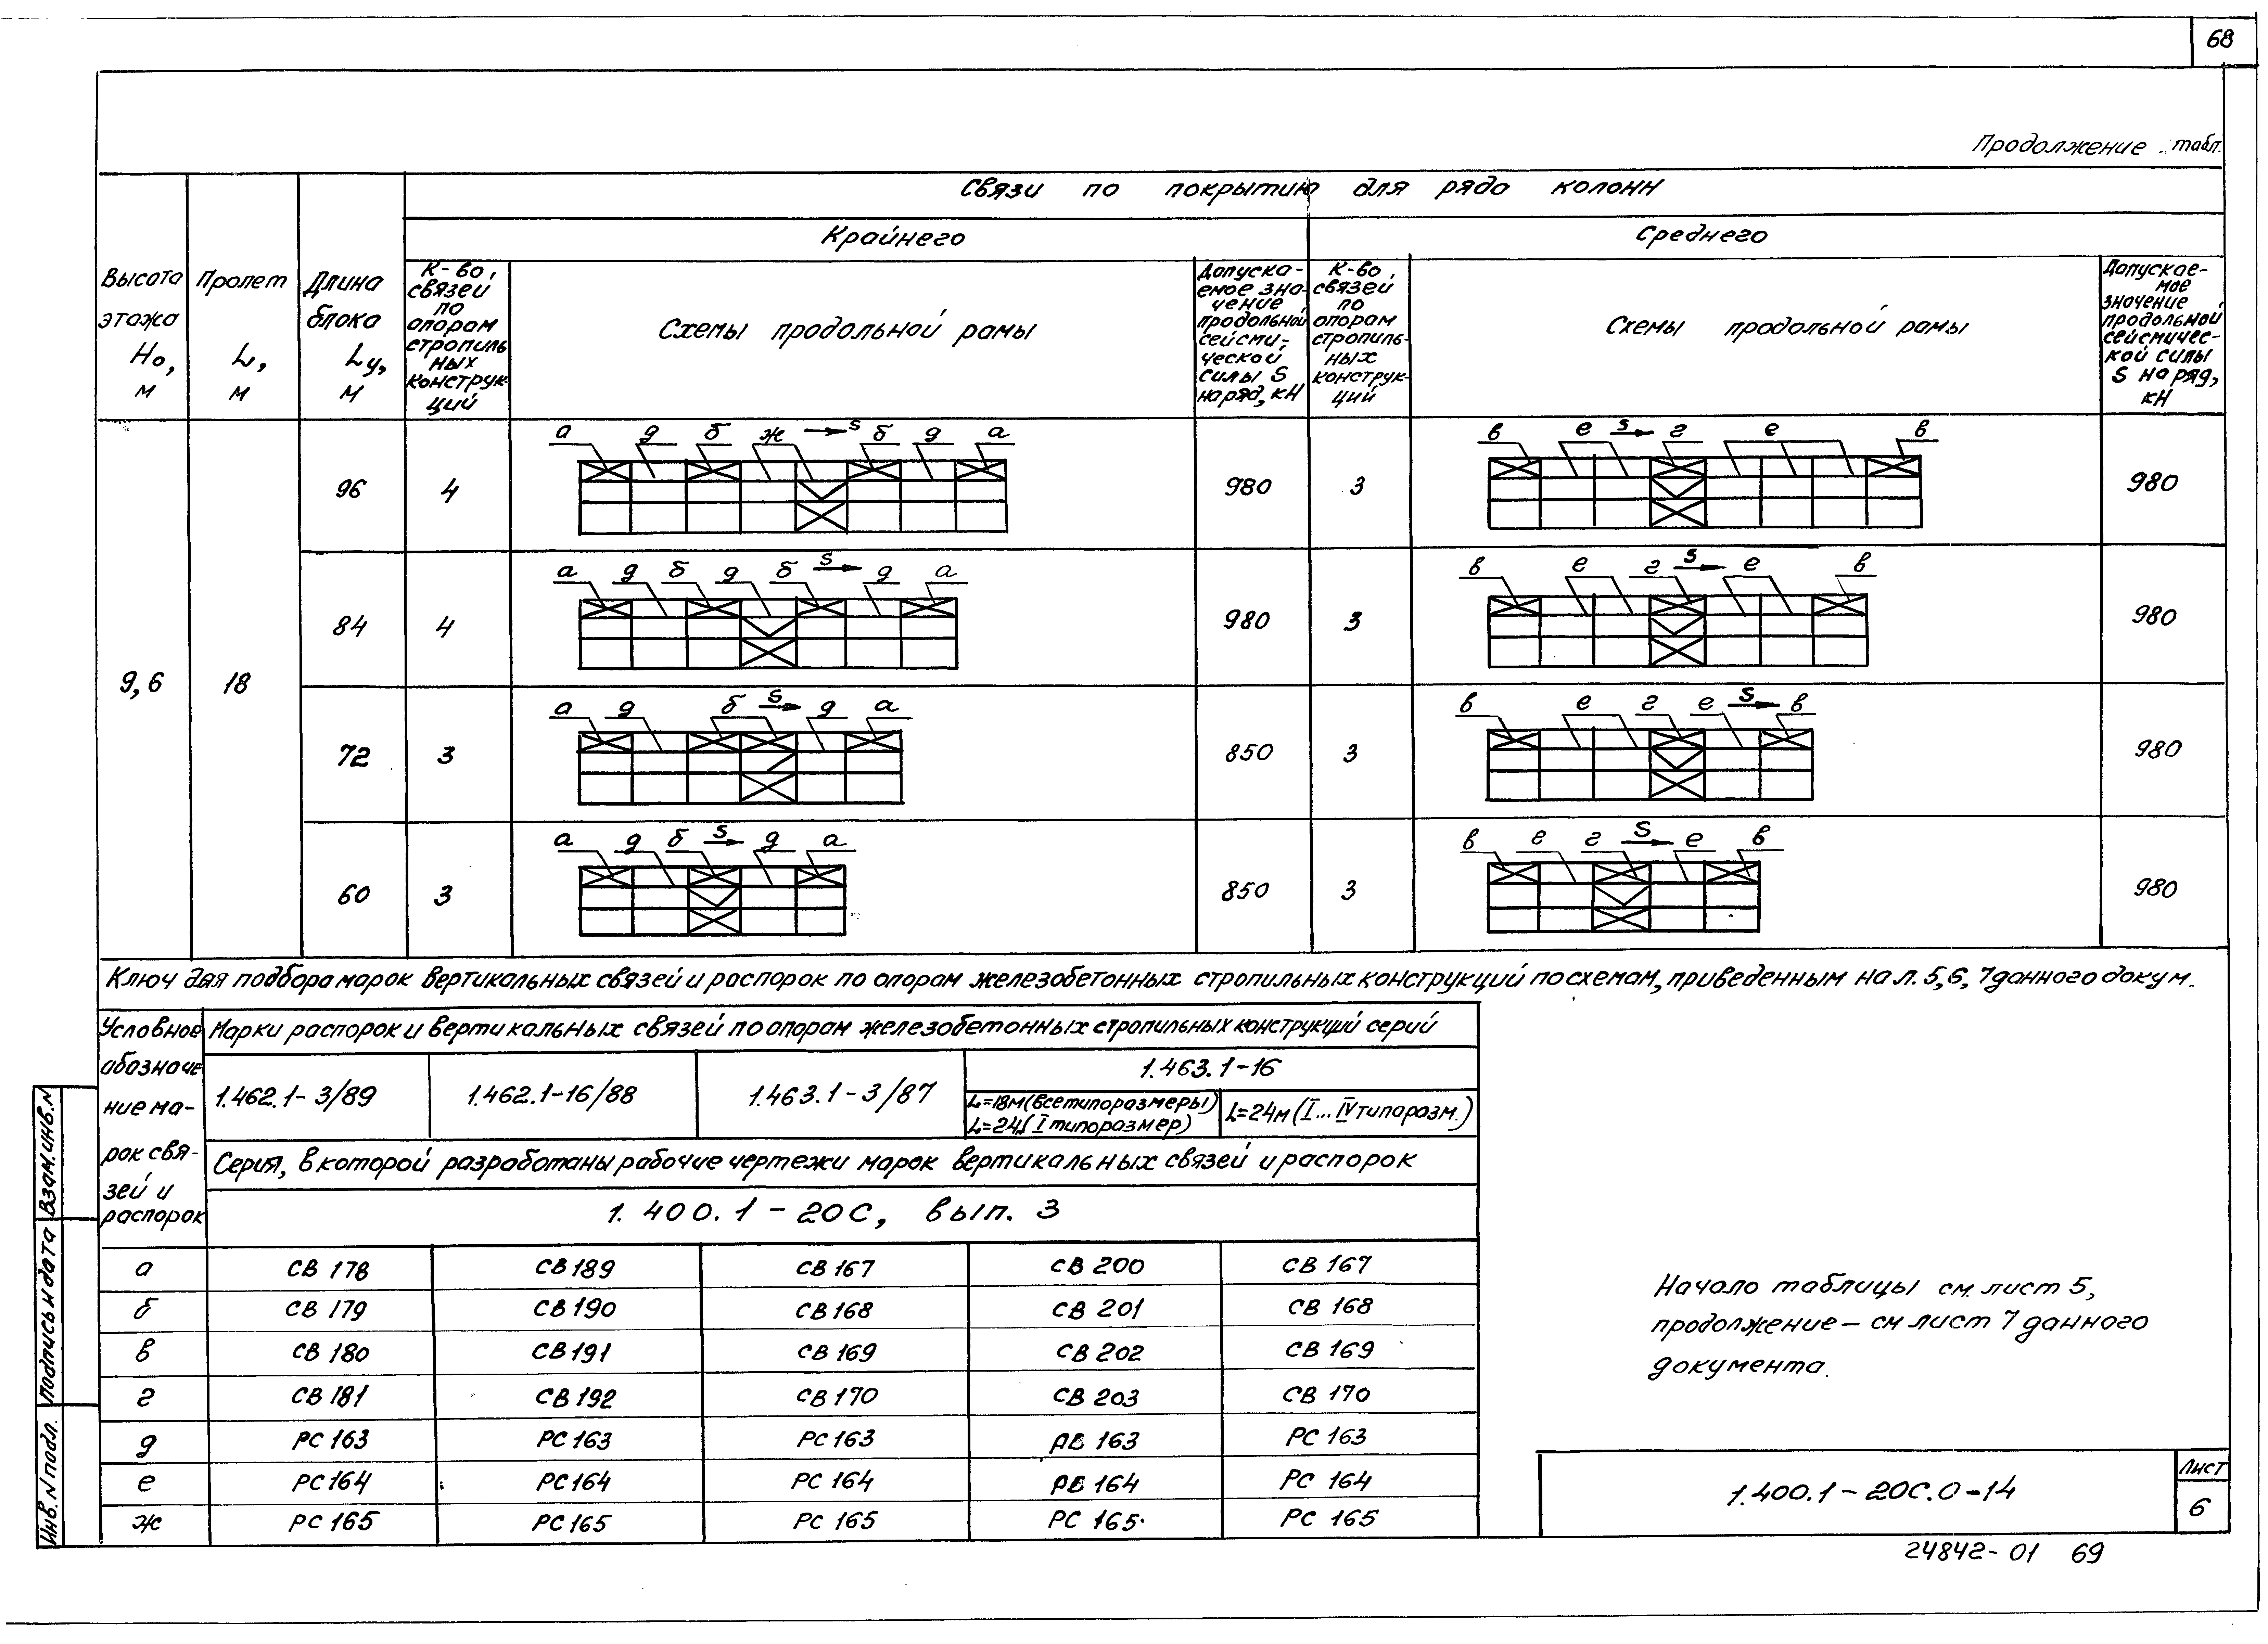 68
Продолжение табл.
Высота этажа Н₀, м
Пролет L, м
Длина блока Lу, м
Связи по покрытию для ряда колонн
Крайнего
Среднего
К-во, связей по опорам стропиль ных конструк-ций
Схемы продольной рамы
Допуска-емое зна-чение продольной сейсми-ческой силы S на ряд, кН
К-во, связей по опорам стропиль-ных конструк-ций
Схемы продольной рамы
Допускае-мое значение продольной сейсмичес-кой силы S на ряд, кН
9,6
18
96
4
а д б ж s б д а
980
3
в е s г е в
980
84
4
а д б д б s д а
980
3
в е г s е в
980
72
3
а д б s д а
850
3
в е г е s в
980
60
3
а д б s д а
850
3
в е г s е в
980
Ключ для подбора марок вертикальных связей и распорок по опорам железобетонных стропильных конструкций по схемам, приведенным на л. 5,6,7 данного докум.
Условное обозначе ние ма-рок свя-зей и распорок
Марки распорок и вертикальных связей по опорам железобетонных стропильных конструкций серий
1.462.1-3/89
1.462.1-16/88
1.463.1-3/87
1.463.1-16
L=18м(все типоразмеры)
L=24( I типоразмер)
L=24м (I... IV типоразм.)
Серия, в которой разработаны рабочие чертежи марок вертикальных связей и распорок
1.400.1-20С, вып. 3
а СВ 178 СВ189 СВ 167 СВ 200 СВ 167
б СВ 179 СВ 190 СВ 168 СВ 201 СВ 168
в СВ 180 СВ191 СВ 169 СВ 202 СВ 169
г СВ 181 СВ 192 СВ 170 СВ 203 СВ 170
д РС 163 РС 163 РС 163 163 РС 163
е РС 164 РС 164 РС 164 164 РС 164
ж РС 165 РС 165 РС 165 РС 165 РС 165
Начало таблицы см. лист 5,
продолжение - см лист 7 данного
документа.
1.400.1-20С.0-14
Лист
6
24842-01 69
Инв. N подл.
Подпись и дата
Взам. инв. N